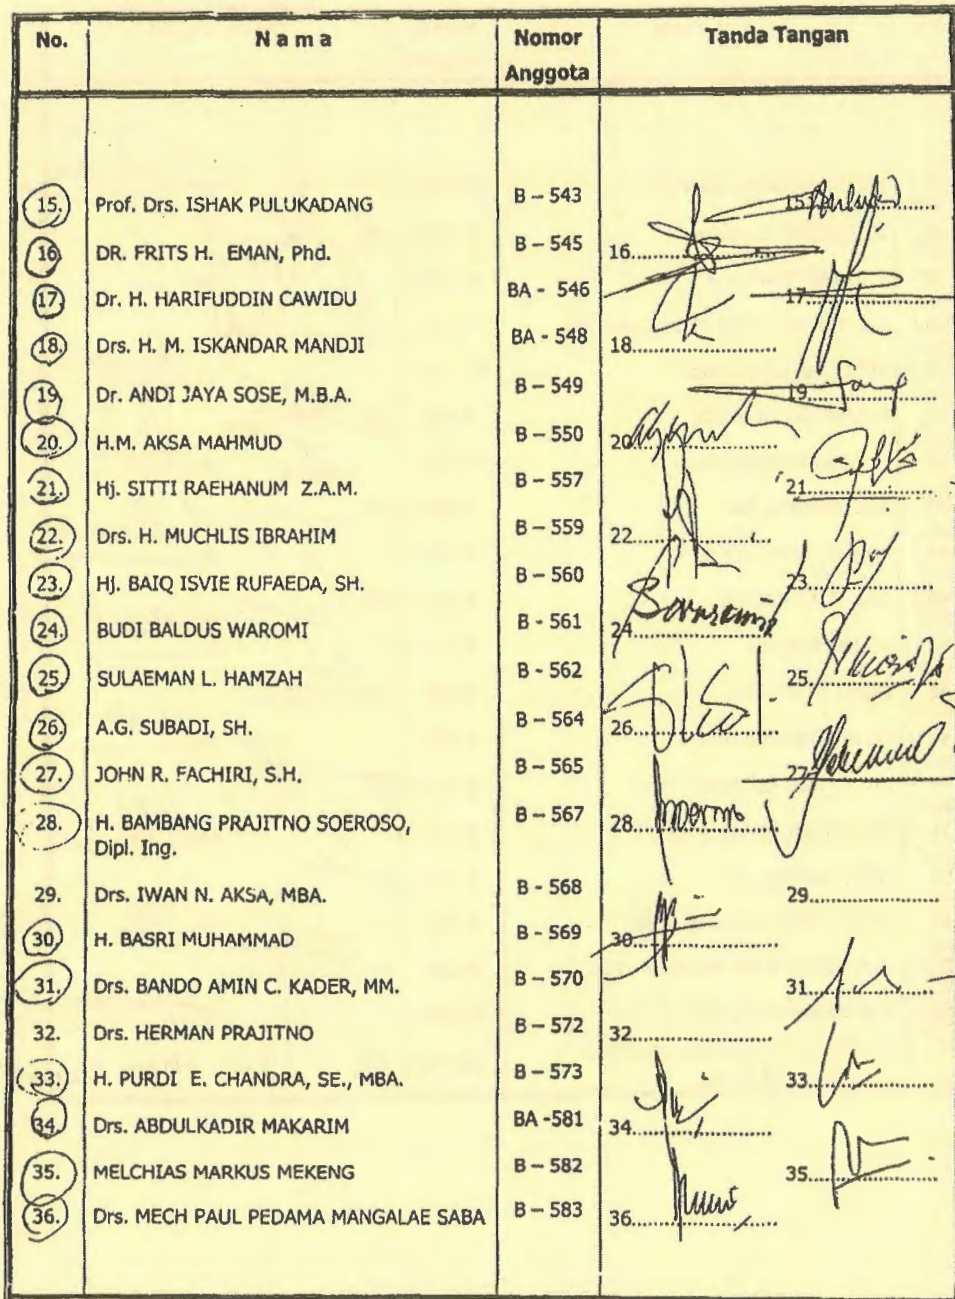 No. N a m a Nomor Anggota Tanda Tangan
15. Prof. Drs. ISHAK PULUKADANG B – 543 15
16. DR. FRITS H. EMAN, Phd. B – 545 16
17. Dr. H. HARIFUDDIN CAWIDU BA - 546 17
18. Drs. H. M. ISKANDAR MANDJI BA - 548 18
19. Dr. ANDI JAYA SOSE, M.B.A. B – 549 19
20. H.M. AKSA MAHMUD B – 550 20
21. Hj. SITTI RAEHANUM Z.A.M. B – 557 21
22. Drs. H. MUCHLIS IBRAHIM B – 559 22
23. Hj. BAIQ ISVIE RUFAEDA, SH. B – 560 23
24. BUDI BALDUS WAROMI B - 561 24
25. SULAEMAN L. HAMZAH B – 562 25
26. A.G. SUBADI, SH. B – 564 26
27. JOHN R. FACHIRI, S.H. B – 565 27
28. H. BAMBANG PRAJITNO SOEROSO, B – 567 28
Dipl. Ing.
29. Drs. IWAN N. AKSA, MBA. B - 568 29
30. H. BASRI MUHAMMAD B - 569 30
31. Drs. BANDO AMIN C. KADER, MM. B – 570 31
32. Drs. HERMAN PRAJITNO B – 572 32
33. H. PURDI E. CHANDRA, SE., MBA. B – 573 33
34. Drs. ABDULKADIR MAKARIM BA -581 34
35. MELCHIAS MARKUS MEKENG B – 582 35
36. Drs. MECH PAUL PEDAMA MANGALAE SABA B – 583 36